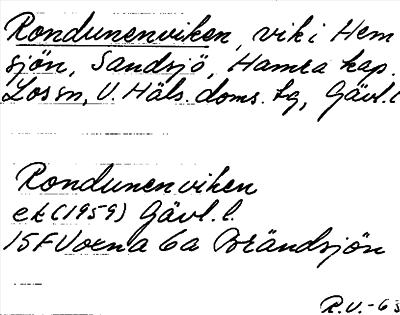 Rondunenviken, vik i Hem
sjön, Sandsjö, Hamra kap.
Lossn, V. Häls. doms. tg, Gävl. l
Rondunenviken
ek (1959) Gävl. l.
15F Voxna 6a Brändsjön
R.V.-63